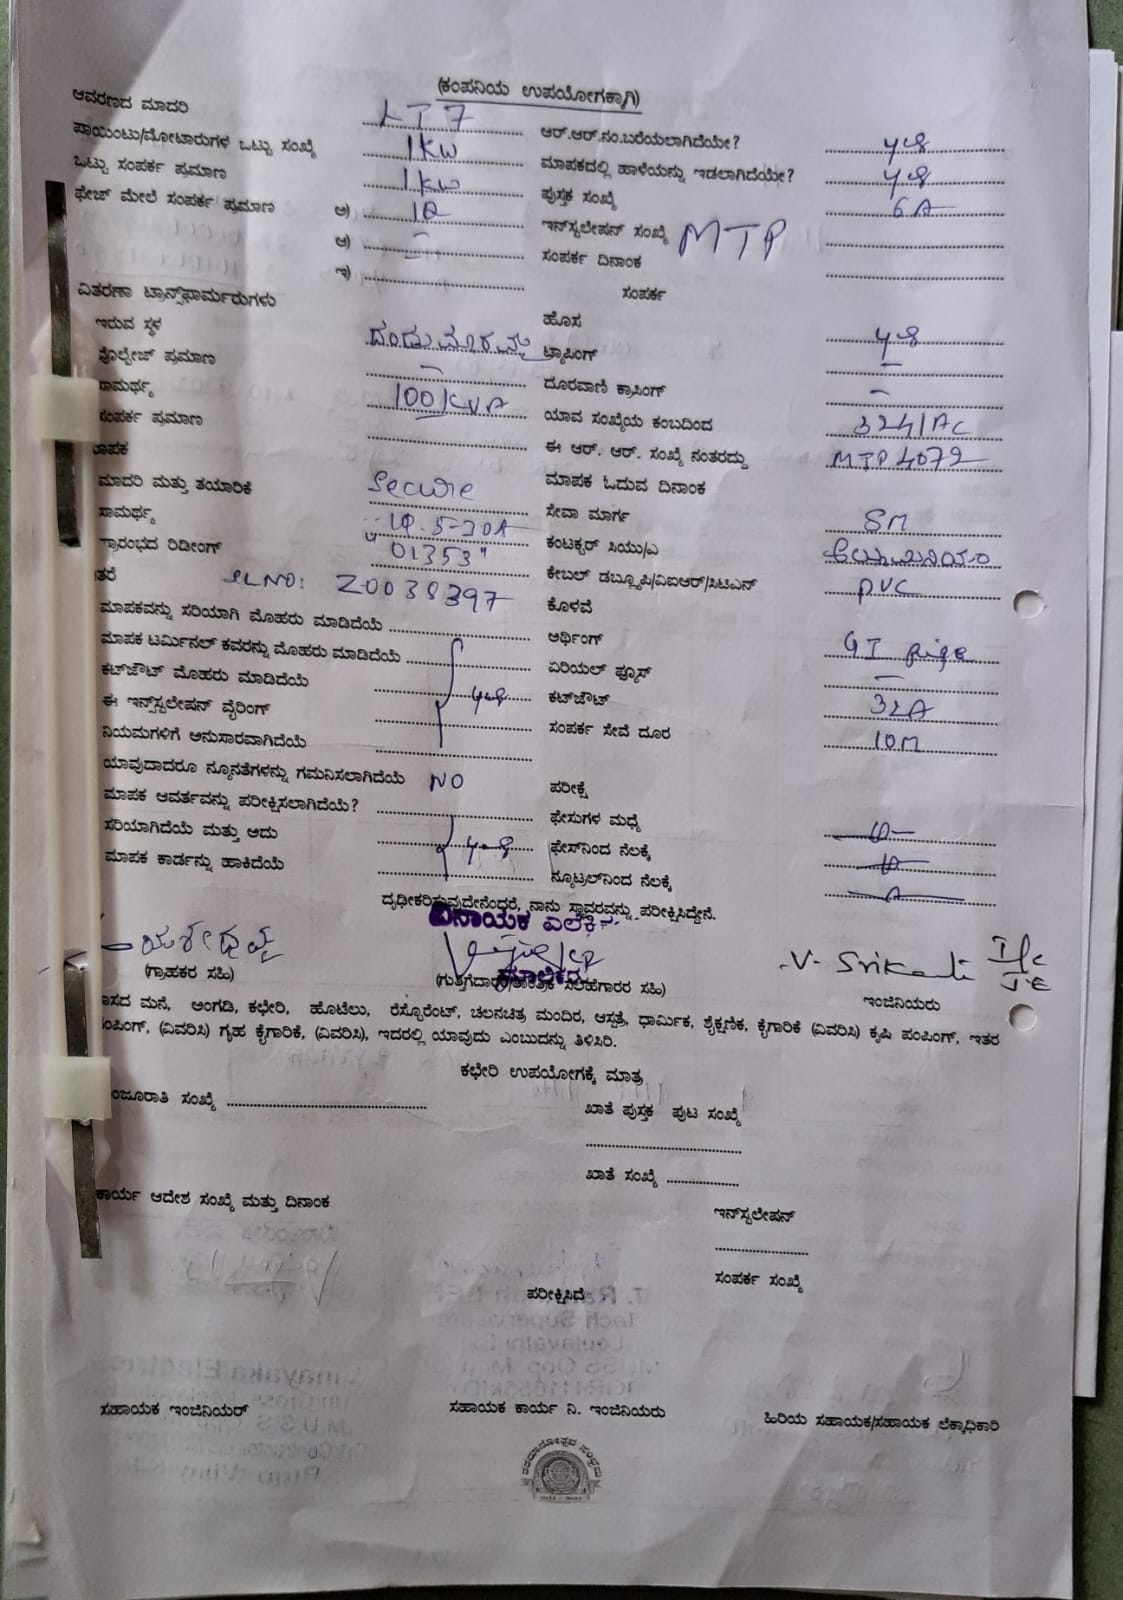 (ಕಂಪನಿಯ ಉಪಯೋಗಕ್ಕಾಗಿ)
ಆವರಣದ ಮಾದರಿ LT 7
ಆರ್.ಆರ್.ನಂ.ಬರೆಯಲಾಗಿದೆಯೇ? yes
ಪಾಯಿಂಟು/ಮೋಟಾರುಗಳ ಒಟ್ಟು ಸಂಖ್ಯೆ 1KW
ಮಾಪಕದಲ್ಲಿ ಹಾಳೆಯನ್ನು ಇಡಲಾಗಿದೆಯೇ? yes
ಒಟ್ಟು ಸಂಪರ್ಕ ಪ್ರಮಾಣ 1KW
ಪುಸ್ತಕ ಸಂಖ್ಯೆ 6A
ಫೇಜ್ ಮೇಲೆ ಸಂಪರ್ಕ ಪ್ರಮಾಣ ಅ)
ಇನ್‌ಸ್ಟಲೇಷನ್ ಸಂಖ್ಯೆ MTP
ಆ) –
ಸಂಪರ್ಕ ದಿನಾಂಕ
ಇ)
ಸಂಪರ್ಕ
ವಿತರಣಾ ಟ್ರಾನ್ಸ್‌ಫಾರ್ಮರುಗಳು
ಹೊಸ yes
ಇರುವ ಸ್ಥಳ
ಟ್ಯಾಪಿಂಗ್ –
ವೋಲ್ಟೇಜ್ ಪ್ರಮಾಣ –
ದೂರವಾಣಿ ಕ್ರಾಸಿಂಗ್ –
ಸಾಮರ್ಥ್ಯ 100KVA
ಯಾವ ಸಂಖ್ಯೆಯ ಕಂಬದಿಂದ 324/AC
ಸಂಪರ್ಕ ಪ್ರಮಾಣ
ಈ ಆರ್. ಆರ್. ಸಂಖ್ಯೆ ನಂತರದ್ದು MTP 4072
ಾಪಕ
ಮಾಪಕ ಓದುವ ದಿನಾಂಕ
ಮಾದರಿ ಮತ್ತು ತಯಾರಿಕೆ Secure
ಸೇವಾ ಮಾರ್ಗ SM
ಸಾಮರ್ಥ್ಯ 5-30A
ಕಂಟಕ್ಟರ್ ಸಿಯು/ಎ ಅಲ್ಯೂಮಿನಿಯಂ
ಪ್ರಾರಂಭದ ರಿಡೀಂಗ್ "01353"
ಕೇಬಲ್ ಡಬ್ಲ್ಯೂಪಿ/ವಿಐಆರ್/ಸಿಟಿಎಸ್ PVC
ತರೆ SLNO: Z0038397
ಕೊಳವೆ
ಮಾಪಕವನ್ನು ಸರಿಯಾಗಿ ಮೊಹರು ಮಾಡಿದೆಯೆ
ಅರ್ಥಿಂಗ್ GI pipe
ಮಾಪಕ ಟರ್ಮಿನಲ್ ಕವರನ್ನು ಮೊಹರು ಮಾಡಿದೆಯೆ
ಏರಿಯಲ್ ಫ್ಯೂಸ್ –
ಕಟ್‌ಔಟ್ ಮೊಹರು ಮಾಡಿದೆಯೆ yes
ಕಟ್‌ಔಟ್ 32A
ಈ ಇನ್‌ಸ್ಟಲೇಷನ್ ವೈರಿಂಗ್
ಸಂಪರ್ಕ ಸೇವೆ ದೂರ 10M
ನಿಯಮಗಳಿಗೆ ಅನುಸಾರವಾಗಿದೆಯೆ
ಯಾವುದಾದರೂ ನ್ಯೂನತೆಗಳನ್ನು ಗಮನಿಸಲಾಗಿದೆಯೆ NO
ಪರೀಕ್ಷೆ
ಮಾಪಕ ಆವರ್ತವನ್ನು ಪರೀಕ್ಷಿಸಲಾಗಿದೆಯೆ?
ಫೇಸುಗಳ ಮಧ್ಯೆ
ಸರಿಯಾಗಿದೆಯೆ ಮತ್ತು ಅದು yes
ಫೇಸ್‌ನಿಂದ ನೆಲಕ್ಕೆ
ಮಾಪಕ ಕಾರ್ಡನ್ನು ಹಾಕಿದೆಯೆ
ನ್ಯೂಟ್ರಲ್‌ನಿಂದ ನೆಲಕ್ಕೆ
ದೃಢೀಕರಿಸುವುದೇನೆಂದರೆ, ನಾನು ಸ್ಥಾವರವನ್ನು ಪರೀಕ್ಷಿಸಿದ್ದೇನೆ.
ವಿನಾಯಕ ಎಲೆಕ್ಟ್ರಿ
ಯಶೋಧಮ್ಮ
V. Srikanth I/c J.E
ಮಾಲೀಕರು
(ಗ್ರಾಹಕರ ಸಹಿ)
(ಗುತ್ತಿಗೆದಾರರ/ತಾಂತ್ರಿಕ ಸಲಹೆಗಾರರ ಸಹಿ)
ಇಂಜಿನಿಯರು
ಾಸದ ಮನೆ, ಅಂಗಡಿ, ಕಛೇರಿ, ಹೊಟೆಲು, ರೆಸ್ಟೊರೆಂಟ್, ಚಲನಚಿತ್ರ ಮಂದಿರ, ಆಸ್ಪತ್ರೆ, ಧಾರ್ಮಿಕ, ಶೈಕ್ಷಣಿಕ, ಕೈಗಾರಿಕೆ (ವಿವರಿಸಿ) ಕೃಷಿ ಪಂಪಿಂಗ್, ಇತರ
ಪಂಪಿಂಗ್, (ವಿವರಿಸಿ) ಗೃಹ ಕೈಗಾರಿಕೆ, (ವಿವರಿಸಿ), ಇದರಲ್ಲಿ ಯಾವುದು ಎಂಬುದನ್ನು ತಿಳಿಸಿರಿ.
ಕಛೇರಿ ಉಪಯೋಗಕ್ಕೆ ಮಾತ್ರ
ಂಜೂರಾತಿ ಸಂಖ್ಯೆ
ಖಾತೆ ಪುಸ್ತಕ ಪುಟ ಸಂಖ್ಯೆ
ಖಾತೆ ಸಂಖ್ಯೆ
ಕಾರ್ಯ ಆದೇಶ ಸಂಖ್ಯೆ ಮತ್ತು ದಿನಾಂಕ
ಇನ್‌ಸ್ಟಲೇಷನ್
ಸಂಪರ್ಕ ಸಂಖ್ಯೆ
ಪರೀಕ್ಷಿಸಿದೆ
ಸಹಾಯಕ ಇಂಜಿನಿಯರ್
ಸಹಾಯಕ ಕಾರ್ಯ ನಿ. ಇಂಜಿನಿಯರು
ಹಿರಿಯ ಸಹಾಯಕ/ಸಹಾಯಕ ಲೆಕ್ಕಾಧಿಕಾರಿ
ಶತಮಾನೋತ್ಸವ ಸಂಭ್ರಮ